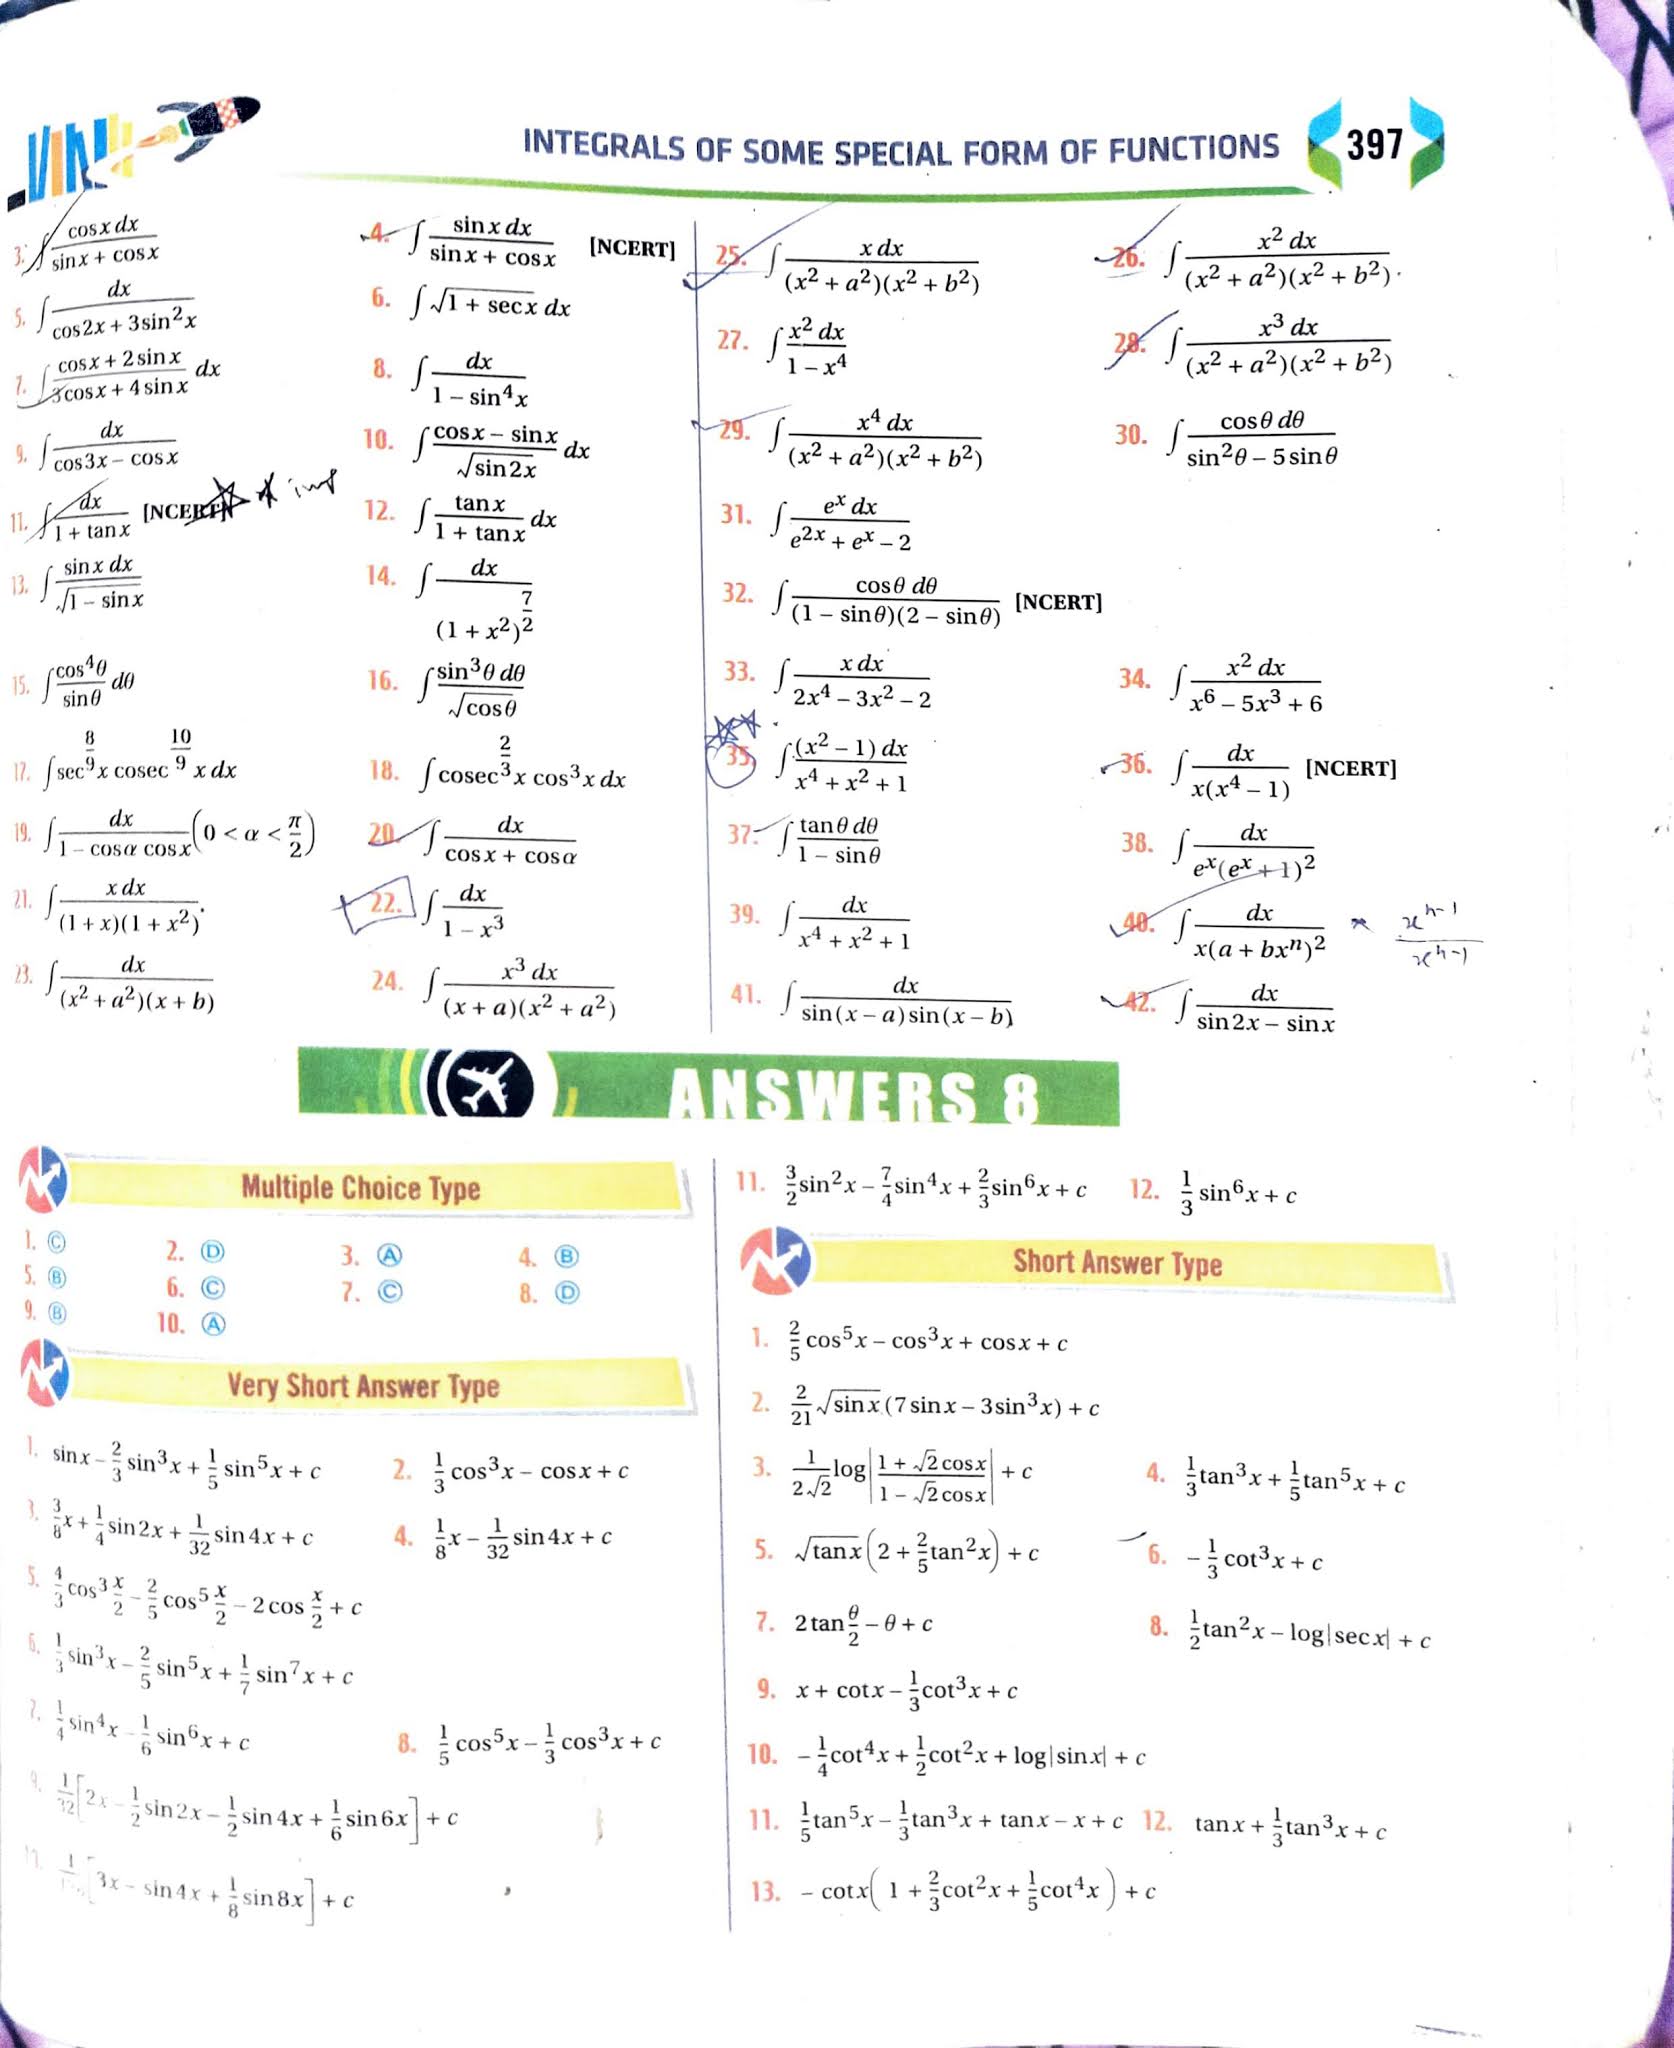 INTEGRALS OF SOME SPECIAL FORM OF FUNCTIONS 397
3. ∫ cosx dx / (sinx + cosx)
4. ∫ sinx dx / (sinx + cosx) [NCERT]
5. ∫ dx / (cos2x + 3sin²x)
6. ∫ √(1 + secx) dx
7. ∫ (cosx + 2sinx) / (3cosx + 4sinx) dx
8. ∫ dx / (1 – sin⁴x)
9. ∫ dx / (cos3x – cosx)
10. ∫ (cosx – sinx) / √(sin2x) dx
11. ∫ dx / (1 + tanx) [NCERT] imp
12. ∫ tanx / (1 + tanx) dx
13. ∫ sinx dx / √(1 – sinx)
14. ∫ dx / (1 + x²)^(7/2)
15. ∫ cos⁴θ / sinθ dθ
16. ∫ sin³θ dθ / √(cosθ)
17. ∫ sec^(8/9) x cosec^(10/9) x dx
18. ∫ cosec^(2/3) x cos³x dx
19. ∫ dx / (1 – cosα cosx) (0 < α < π/2)
20. ∫ dx / (cosx + cosα)
21. ∫ x dx / ((1 + x)(1 + x²))
22. ∫ dx / (1 – x³)
23. ∫ dx / ((x² + a²)(x + b))
24. ∫ x³ dx / ((x + a)(x² + a²))
25. ∫ x dx / ((x² + a²)(x² + b²))
26. ∫ x² dx / ((x² + a²)(x² + b²))
27. ∫ x² dx / (1 – x⁴)
28. ∫ x³ dx / ((x² + a²)(x² + b²))
29. ∫ x⁴ dx / ((x² + a²)(x² + b²))
30. ∫ cosθ dθ / (sin²θ – 5sinθ)
31. ∫ eˣ dx / (e²ˣ + eˣ – 2)
32. ∫ cosθ dθ / ((1 – sinθ)(2 – sinθ)) [NCERT]
33. ∫ x dx / (2x⁴ – 3x² – 2)
34. ∫ x² dx / (x⁶ – 5x³ + 6)
35. ∫ (x² – 1) dx / (x⁴ + x² + 1)
36. ∫ dx / (x(x⁴ – 1)) [NCERT]
37. ∫ tanθ dθ / (1 – sinθ)
38. ∫ dx / (eˣ(eˣ + 1)²)
39. ∫ dx / (x⁴ + x² + 1)
40. ∫ dx / (x(a + bxⁿ)²) × xⁿ⁻¹ / xⁿ⁻¹
41. ∫ dx / (sin(x – a) sin(x – b))
42. ∫ dx / (sin2x – sinx)
ANSWERS 8
Multiple Choice Type
1. C 2. D 3. A 4. B
5. B 6. C 7. C 8. D
9. B 10. A
Very Short Answer Type
1. sinx – 2/3 sin³x + 1/5 sin⁵x + c
2. 1/3 cos³x – cosx + c
3. 3/8 x + 1/4 sin2x + 1/32 sin4x + c
4. 1/8 x – 1/32 sin4x + c
5. 4/3 cos³ x/2 – 2/5 cos⁵ x/2 – 2cos x/2 + c
6. 1/3 sin³x – 2/5 sin⁵x + 1/7 sin⁷x + c
7. 1/4 sin⁴x – 1/6 sin⁶x + c
8. 1/5 cos⁵x – 1/3 cos³x + c
9. 1/32 [2x – 1/2 sin2x – 1/2 sin4x + 1/6 sin6x] + c
[3x – sin4x + 1/8 sin8x] + c
11. 3/2 sin²x – 7/4 sin⁴x + 2/3 sin⁶x + c
12. 1/3 sin⁶x + c
Short Answer Type
1. 2/5 cos⁵x – cos³x + cosx + c
2. 2/21 √(sinx) (7sinx – 3sin³x) + c
3. 1/(2√2) log|(1 + √2 cosx) / (1 – √2 cosx)| + c
4. 1/3 tan³x + 1/5 tan⁵x + c
5. √(tanx) (2 + 2/5 tan²x) + c
6. – 1/3 cot³x + c
7. 2tan θ/2 – θ + c
8. 1/2 tan²x – log|secx| + c
9. x + cotx – 1/3 cot³x + c
10. – 1/4 cot⁴x + 1/2 cot²x + log|sinx| + c
11. 1/5 tan⁵x – 1/3 tan³x + tanx – x + c
12. tanx + 1/3 tan³x + c
13. – cotx( 1 + 2/3 cot²x + 1/5 cot⁴x ) + c